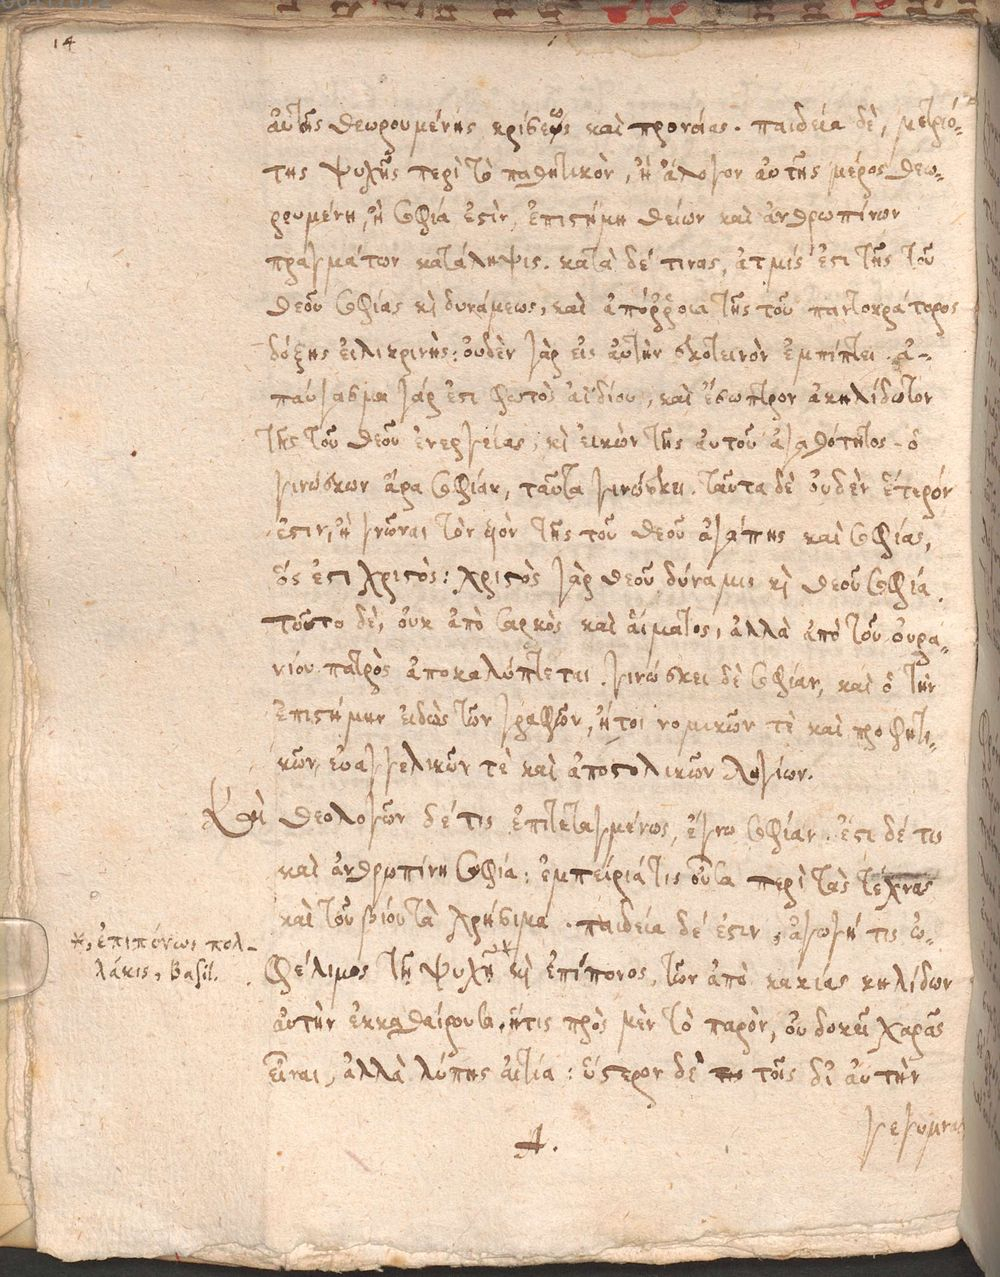 14
αὐτῆς θεωρουμένης κρίσεως καὶ προνοίας. παιδεία δὲ, μετριό-
της ψυχῆς περὶ τὸ παθητικὸν, ἢ ἄλογον αὐτῆς μέρος θεω-
ρουμένη, ἢ σοφία ἐστὶν, ἐπιστήμη θείων καὶ ἀνθρωπίνων
πραγμάτων κατάληψις. κατὰ δέ τινας, ἀτμίς ἐστι τῆς τοῦ
θεοῦ σοφίας κὶ δυνάμεως, καὶ ἀπόῤῥοια τῆς τοῦ παντοκράτορος
δόξης εἰλικρινής: οὐδὲν γὰρ εἰς αὐτὴν σκοτεινὸν ἐμπίπτει. ἀ-
παύγασμα γάρ ἐστι φωτὸς ἀϊδίου, καὶ ἔσωπτρον ἀκηλίδωτον
τῆς τοῦ θεοῦ ἐνεργείας, κὶ εἰκὼν τῆς αὐτοῦ ἀγαθότητος. ὁ
γινώσκων ἄρα σοφίαν, ταῦτα γινώσκει. ταῦτα δὲ οὐδὲν ἕτερόν
ἐστιν, ἢ γνῶναι τὸν υἱὸν τῆς τοῦ θεοῦ ἀγάπης καὶ σοφίας,
ὅς ἐστι χριστὸς: χριστὸς γὰρ θεοῦ δύναμις κὶ θεοῦ σοφία.
τοῦτο δὲ, οὐκ ἀπὸ σαρκὸς καὶ αἵματος, ἀλλὰ ἀπὸ τοῦ οὐρα-
νίου πατρὸς ἀποκαλύπτεται. γινώσκει δὲ σοφίαν, καὶ ὁ τὴν
ἐπιστήμην εἰδὼς τῶν γραφῶν, ἤτοι νομικῶν τὲ καὶ προφητι-
κῶν, εὐαγγελικῶν τὲ καὶ ἀποστολικῶν λογίων.
Καὶ θεολογῶν δέ τις ἐπιτεταγμένως, ἔγνω σοφίαν. ἔστι δέ τις
καὶ ἀνθρωπίνη σοφία: ἐμπειρία τις οὖσα περὶ τὰς τέχνας
καὶ τοῦ βίου τὰ χρήσιμα. παιδεία δέ ἐστιν, ἀγωγή τις ὠ-
φέλιμος τῇ ψυχῇ * κὶ ἐπίπονος, τῶν ἀπὸ κακίας κηλίδων
*, ἐπιπόνως πολ-
λάκις, Βασίλ.
αὐτὴν ἐκκαθαίρουσα. ἥτις πρὸς μὲν τὸ παρὸν, οὐ δοκεῖ χαρᾶς
εἶναι, ἀλλὰ λύπης αἰτία: ὕστερον δὲ τοῖς δι' αὐτὴν
γεγυμνας